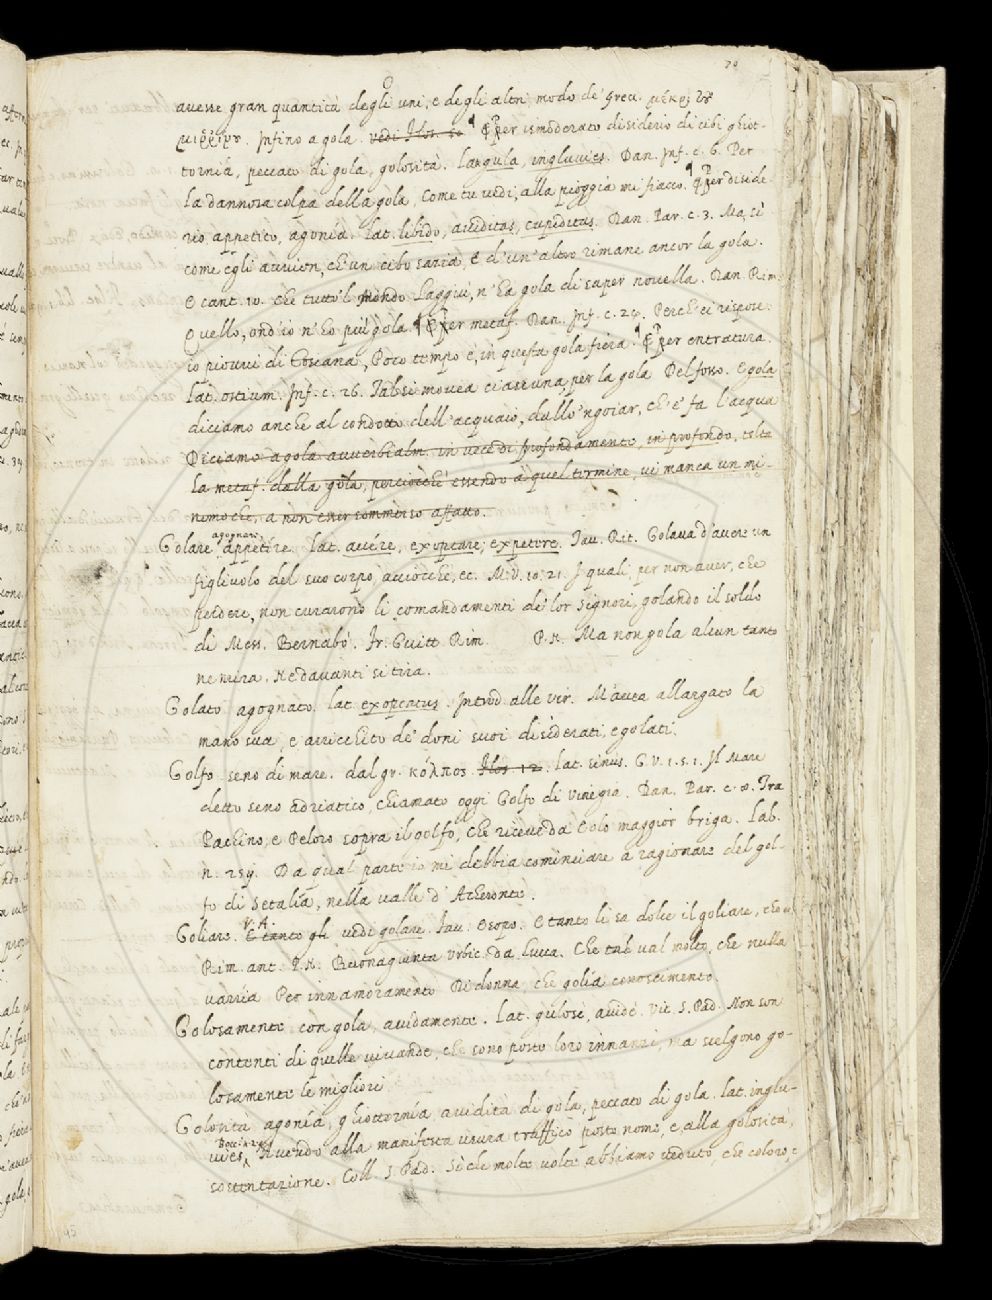 70
avesse gran quantità degli uni, e degli altri, modo de' Greci.
Infino a gola. vedi Flos. 50. ¶ Per ismoderato disiderio di cibi ghiot-
tornía, peccato di gola, golosità. Lat. gula, ingluvies. Dan. Inf. c. 6. Per
la dannosa colpa della gola, Come tu vedi, alla pioggia mi fiacco. ¶ Per diside-
rio, appetito, agonía. Lat. libido, aviditas, cupiditas. Dan. Par. c. 3. Ma, sì
come egli avvien, ch'un cibo sazia, E d'un'altro rimane ancor la gola.
E cant. 10. che tutto 'l mondo Laggiù, n'ha gola di saper novella. Dan. Rim.
Quello, ond'io n'ho più gola. ¶ Per metaf. Dan. Inf. c. 24. Perch'ei rispose:
io piovvi di Toscana, Poco tempo è, in questa gola fiera. ¶ Per entratura.
Lat. ostium. Inf. c. 26. Tal si movea ciascuna, per la gola Del fosso. E gola
diciamo anche al condotto dell'acquaio, dallo 'ngoiar, ch'e' fa l'acqua
Diciamo a gola avverbialm. in vece di profondamento, in profondo, tolta
la metaf. dalla gola, perciocchè essendo a quel termine, vi manca un mi-
nomo che, a non esser sommerso affatto.
Golare. agognare, appetire. Lat. avére, exoptare, expetere. Tav. Rit. Golava d'avere un
figlivolo del suo corpo, acciocchè, ec. M. V. 10. 21. I quali per non aver, che
perdere, non curarono li comandamenti de' lor signori, golando il soldo
di Mess. Bernabò. Fr. Guitt. Rim. P. N. Ma non gola alcun tanto
ne mira, Ne davanti si tira.
Golato agognato. lat. exoptatus. Introd. alle vir. M'avea allargato la
mano sua, e arricchito de' doni suoi disiderati, e golati.
Golfo. seno di mare. dal gr. κόλπος. Flos 12. lat. sinus. G. V. 1. 5. 1. Il Mare
detto seno adriatico, chiamato oggi Golfo di Vinegia. Dan. Par. c. 8. Tra
Pachino, e Peloro sopra il golfo, Che riceve da Eolo maggior briga. Lab.
n. 259. Da qual parte io mi debbia cominciare a ragionare del gol-
fo di Setalía, nella valle d'Acheronte.
Goliare. V. A. E tanto gli vedi golare. Fav. Esopo. E tanto li sa dolce il goliare, che
Rim. ant. P. N. Buonagiunta Urbic. da Lucca. Che tal val molto, che nulla
varría Per innamoramento Di donna, che golía conoscimento.
Golosamente. con gola, avidamente. Lat. gulose, avide. Vit. S. Pad. Non son
contenti di quelle vivande, che sono posto loro innanzi, ma svelgono go-
losamente le migliori.
Golosità agonía, ghiottornía avidità di gola, peccato di gola. lat. inglu-
vies. Avendo alla manifesta usura traffico posto nome, e alla golosità,
sostentazione. Coll. S. Pad. Sì che molte volte abbiamo veduto, che coloro,
95